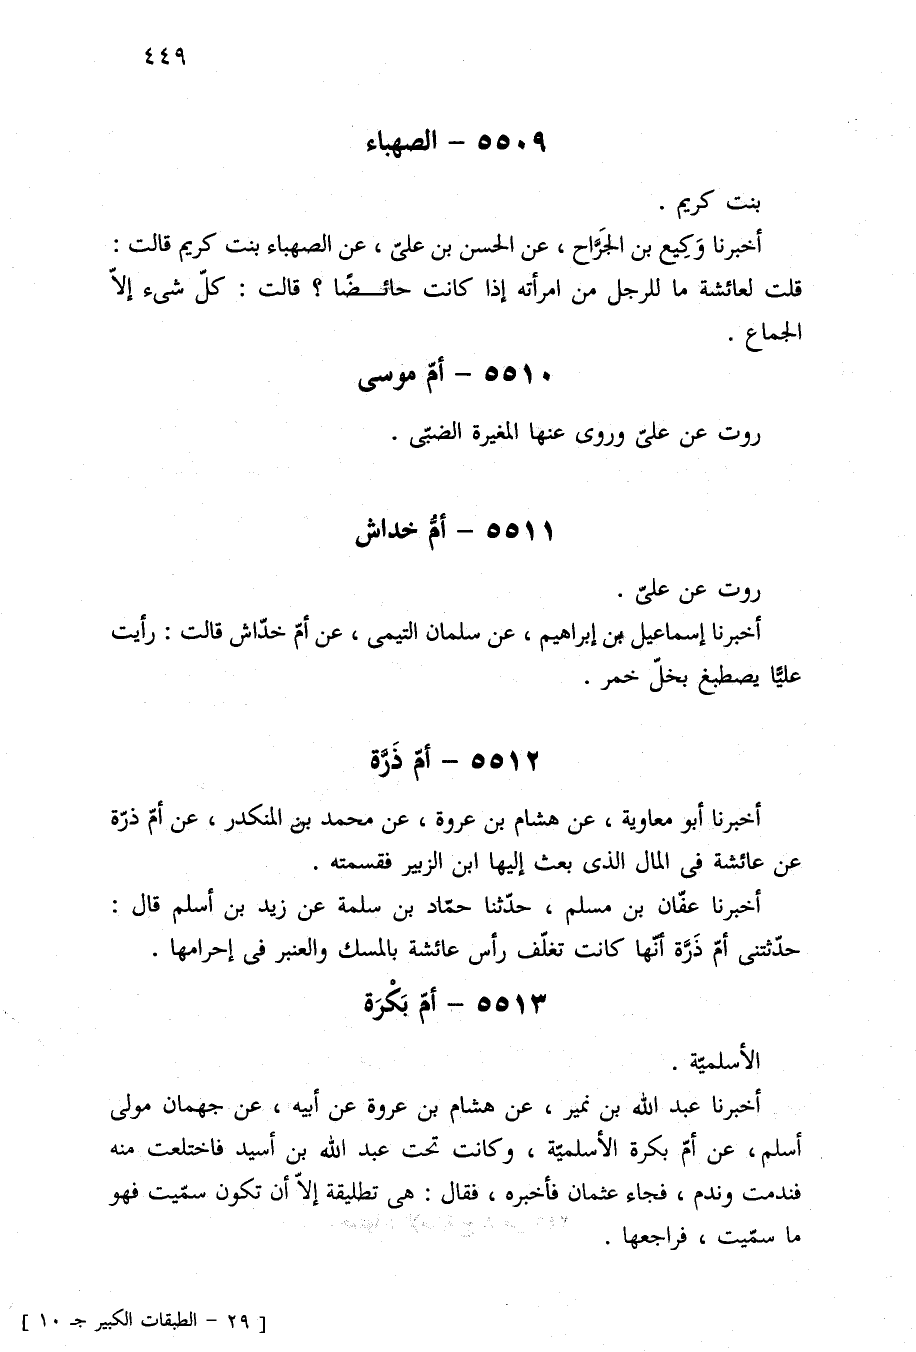 ٤٤٩
٥٥٠٩ – الصهباء
بنت كريم .
أخبرنا وَكِيع بن الجَرَّاح ، عن الحسن بن علىّ ، عن الصهباء بنت كريم قالت :
قلت لعائشة ما للرجل من امرأته إذا كانت حائـضًا ؟ قالت : كلّ شىء إلاّ
الجماع .
٥٥١٠ – أمّ موسى
روت عن علىّ وروى عنها المغيرة الضبّى .
٥٥١١ – أمُّ خداش
روت عن علىّ .
أخبرنا إسماعيل بن إبراهيم ، عن سلمان التيمى ، عن أمّ خدّاش قالت : رأيت
عليًّا يصطبغ بخلّ خمر .
٥٥١٢ – أمّ ذَرَّة
أخبرنا أبو معاوية ، عن هشام بن عروة ، عن محمد بن المنكدر ، عن أمّ ذرّة
عن عائشة فى المال الذى بعث إليها ابن الزبير فقسمته .
أخبرنا عفّان بن مسلم ، حدّثنا حمّاد بن سلمة عن زيد بن أسلم قال :
حدّثتنى أمّ ذَرَّة أنّها كانت تغلّف رأس عائشة بالمسك والعنبر فى إحرامها .
٥٥١٣ – أمّ بَكْرَة
الأسلميّة .
أخبرنا عبد الله بن نمير ، عن هشام بن عروة عن أبيه ، عن جهمان مولى
أسلم ، عن أمّ بكرة الأسلميّة ، وكانت تحت عبد الله بن أسيد فاختلعت منه
فندمت وندم ، فجاء عثمان فأخبره ، فقال : هى تطليقة إلاّ أن تكون سمّيت فهو
ما سمّيت ، فراجعها .
[ ٢٩ – الطبقات الكبير جـ ١٠ ]